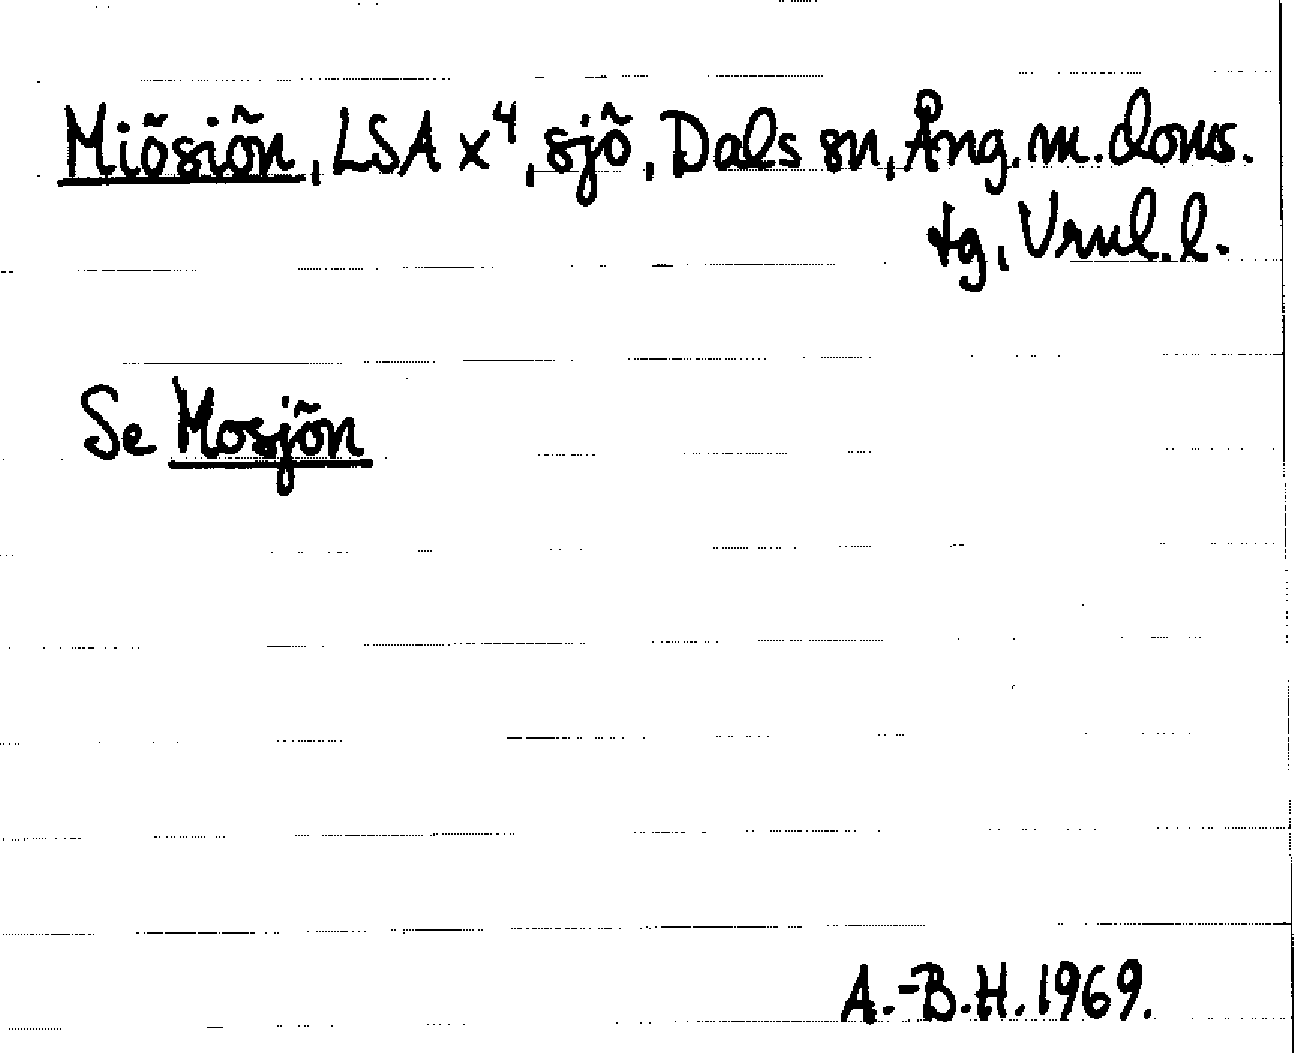 Miösiön, LSA x⁴, sjö, Dals sn, Ång. m. doms.
tg, Vrnl. l.
Se Mosjön
A.-B.H. 1969.